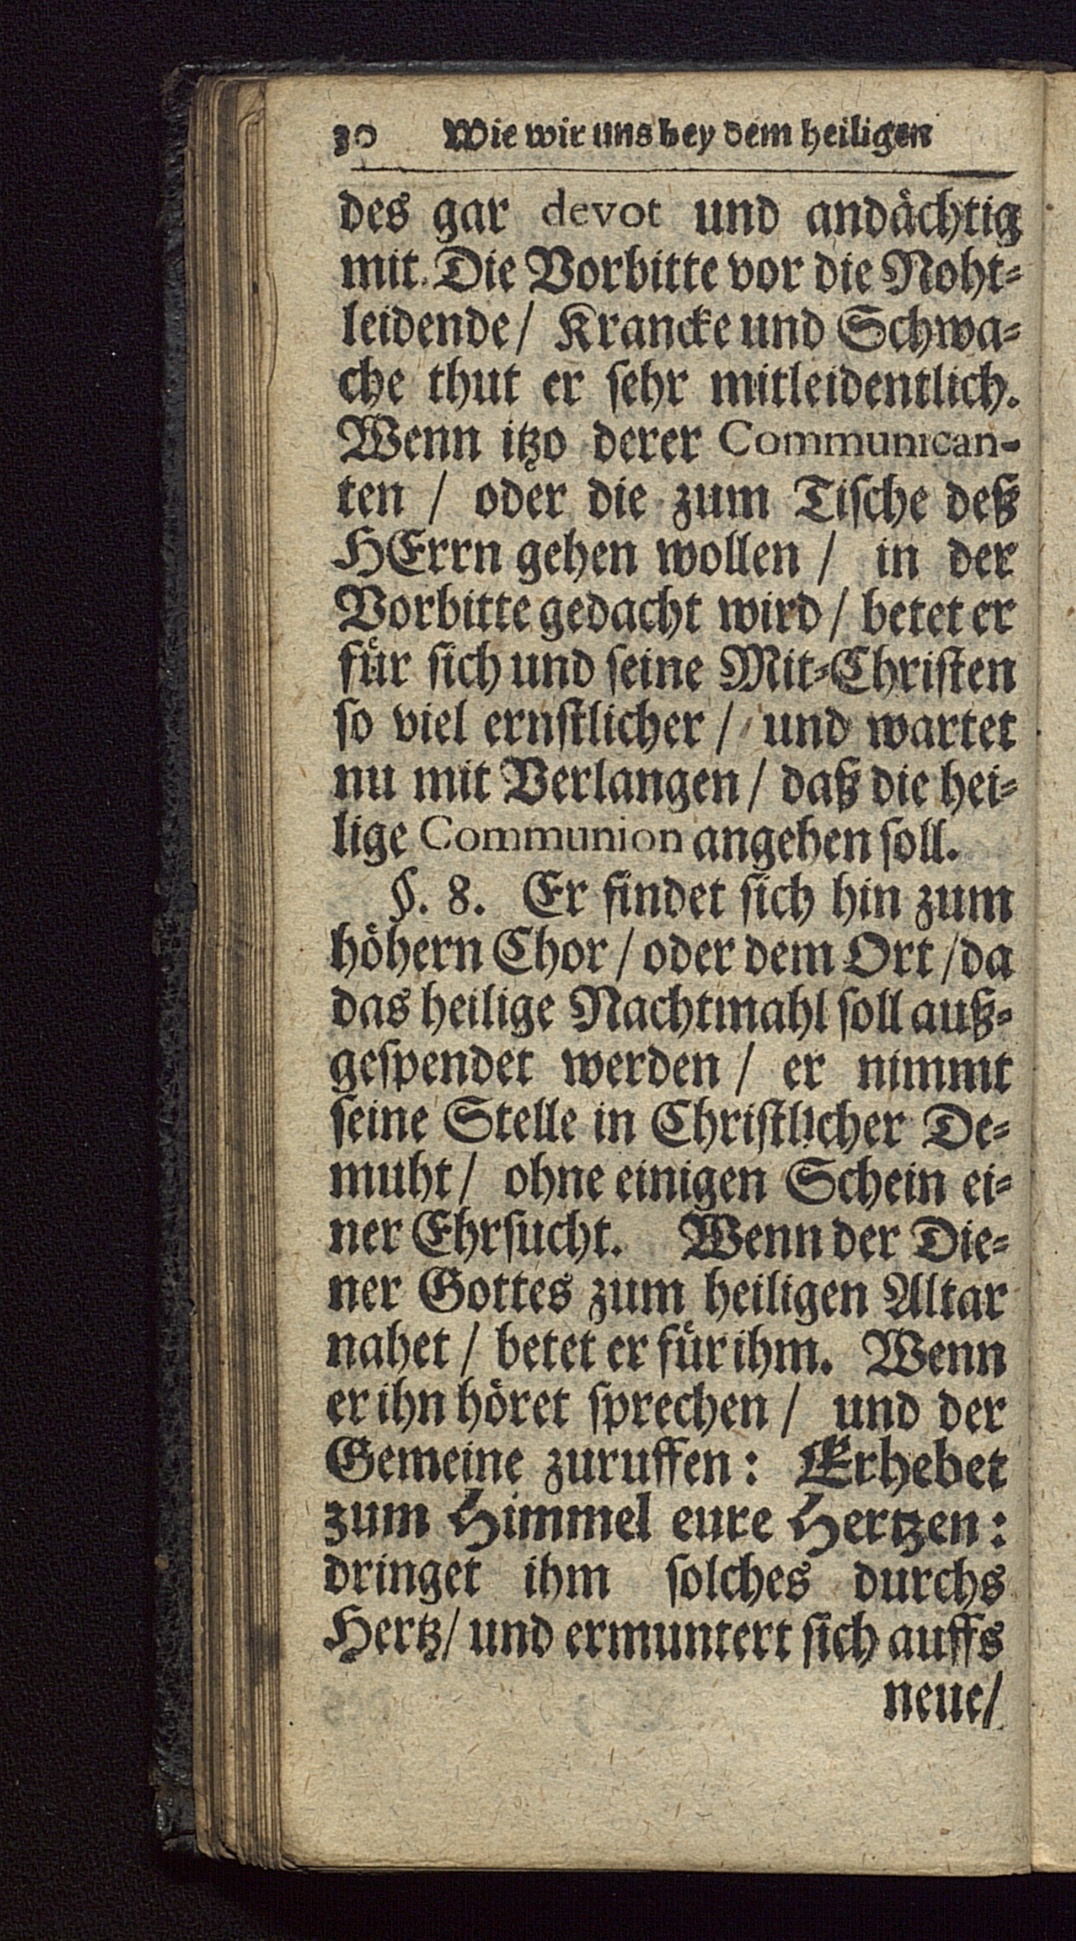 30 Wie wir uns bey dem heiligen
des gar devot und andächtig
mit. Die Vorbitte vor die Noht-
leidende/ Krancke und Schwa-
che thut er sehr mitleidentlich.
Wenn itzo derer Communican-
ten / oder die zum Tische deß
HErrn gehen wollen / in der
Vorbitte gedacht wird / betet er
für sich und seine Mit-Christen
so viel ernstlicher / und wartet
nu mit Verlangen / daß die hei-
lige Communion angehen soll.
§. 8. Er findet sich hin zum
höhern Chor / oder dem Ort / da
das heilige Nachtmahl soll auß-
gespendet werden / er nimmt
seine Stelle in Christlicher De-
muht / ohne einigen Schein ei-
ner Ehrsucht. Wenn der Die-
ner Gottes zum heiligen Altar
nahet / betet er für ihm. Wenn
er ihn höret sprechen / und der
Gemeine zuruffen: Erhebet
zum Himmel eure Hertzen:
dringet ihm solches durchs
Hertz/ und ermuntert sich auffs
neue/